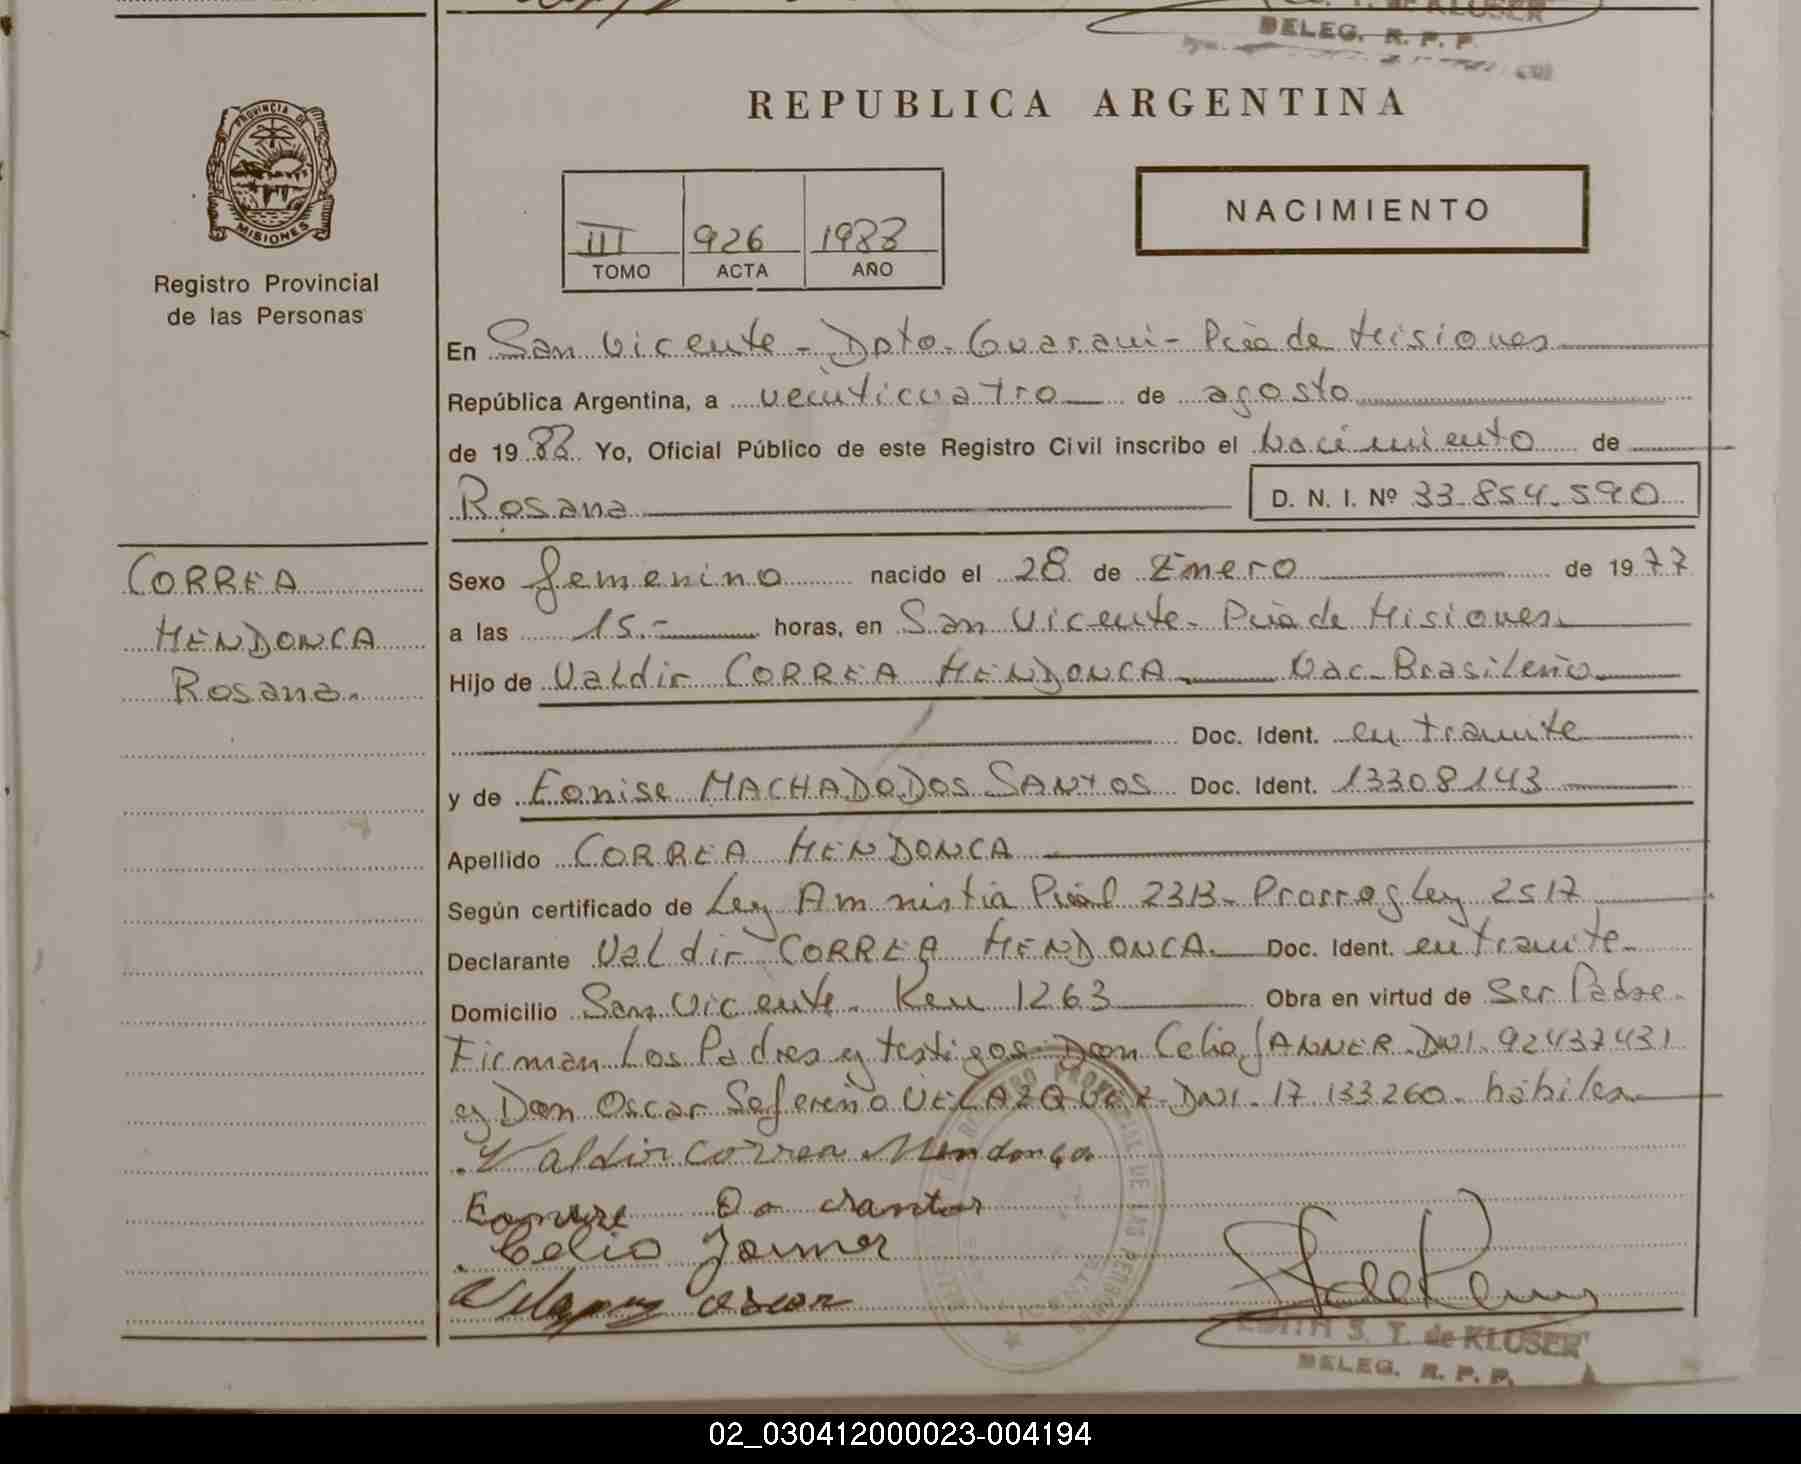 de KLUSER
DELEG. R. P. P.
PROVINCIA DE
MISIONES
Registro Provincial
de las Personas
REPUBLICA ARGENTINA
NACIMIENTO
III 926 1988
TOMO ACTA AÑO
En San Vicente - Dpto. Guarani - Pcia de Misiones
República Argentina, a veinticuatro de agosto
de 1988 Yo, Oficial Público de este Registro Civil inscribo el Nacimiento de
Rosana D. N. I. Nº 33.854.590
CORREA
MENDONCA
Rosana.
Sexo femenino nacido el 28 de Enero de 1977
a las 15.- horas, en San Vicente - Pcia de Misiones.
Hijo de Valdir CORREA MENDONCA Nac. Brasileño
Doc. Ident. en tramite
y de Eonise MACHADO DOS SANTOS Doc. Ident. 13308143
Apellido CORREA MENDONCA
Según certificado de Ley Amnistia Pcial 2313- Prorrog Ley 2517
Declarante Valdir CORREA MENDONCA. Doc. Ident. en tramite.
Domicilio San Vicente. Km 1263 Obra en virtud de Ser Padre.
Firman Los Padres y testigos Don Celio JANNER. DNI. 92437431
y Don Oscar Sefereño VELAZQUEZ. DNI. 17.133260. hábiles
Valdir correa Mendonça
Eonise Do santos
Celio Janner
Velazquez oscar
EDITH S. T. de KLUSER
DELEG. R. P. P.
02_030412000023-004194